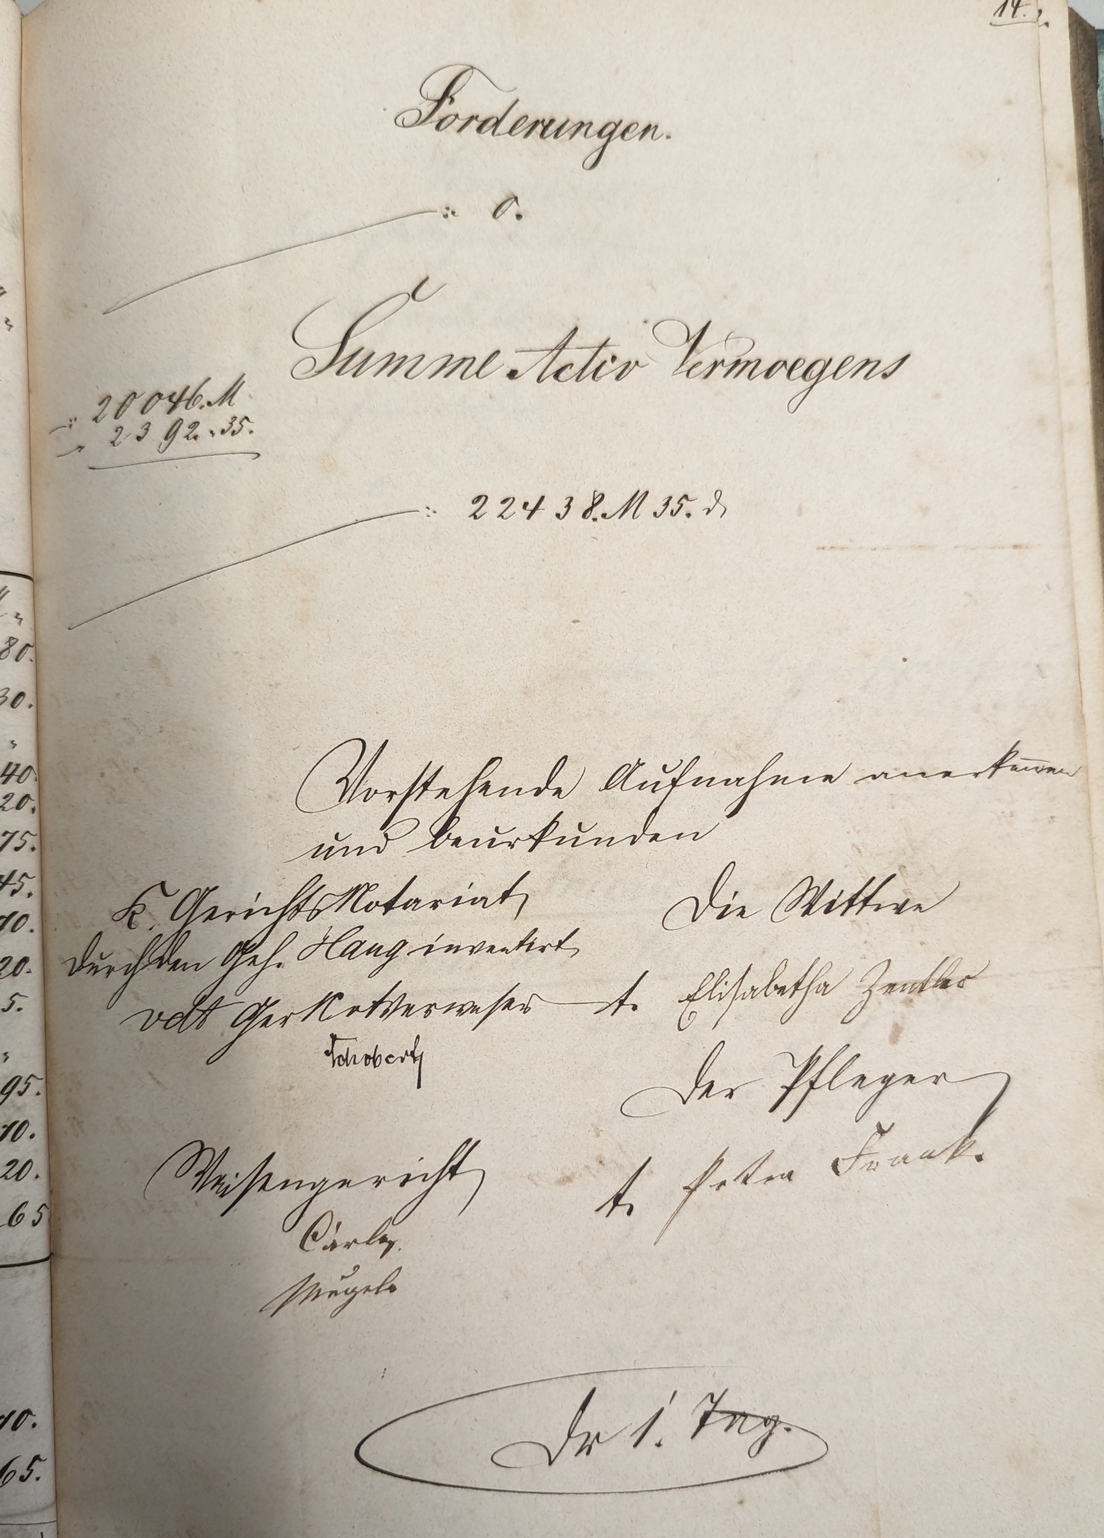 14.
Forderungen.
" 0.
Summe Activ Vermoegens
" 20046.M
" 2392. " 35.
" 22438. M 35. ₰
Vorstehende Aufnahme anerkennen
und beurkunden
K. GerichtsNotariat
durch den Geh. Haag inventirt
vdt GerNotVerweser
Schobert
Die Wittwe
t. Elisabetha Zentler
Der Pfleger
t. Peter Frank.
Waisengericht
Carle
Mugele
Dr 1. Tag.
80.
30.
"
40
20.
75.
45.
10.
20.
5.
"
95.
10.
20.
65
10.
65.